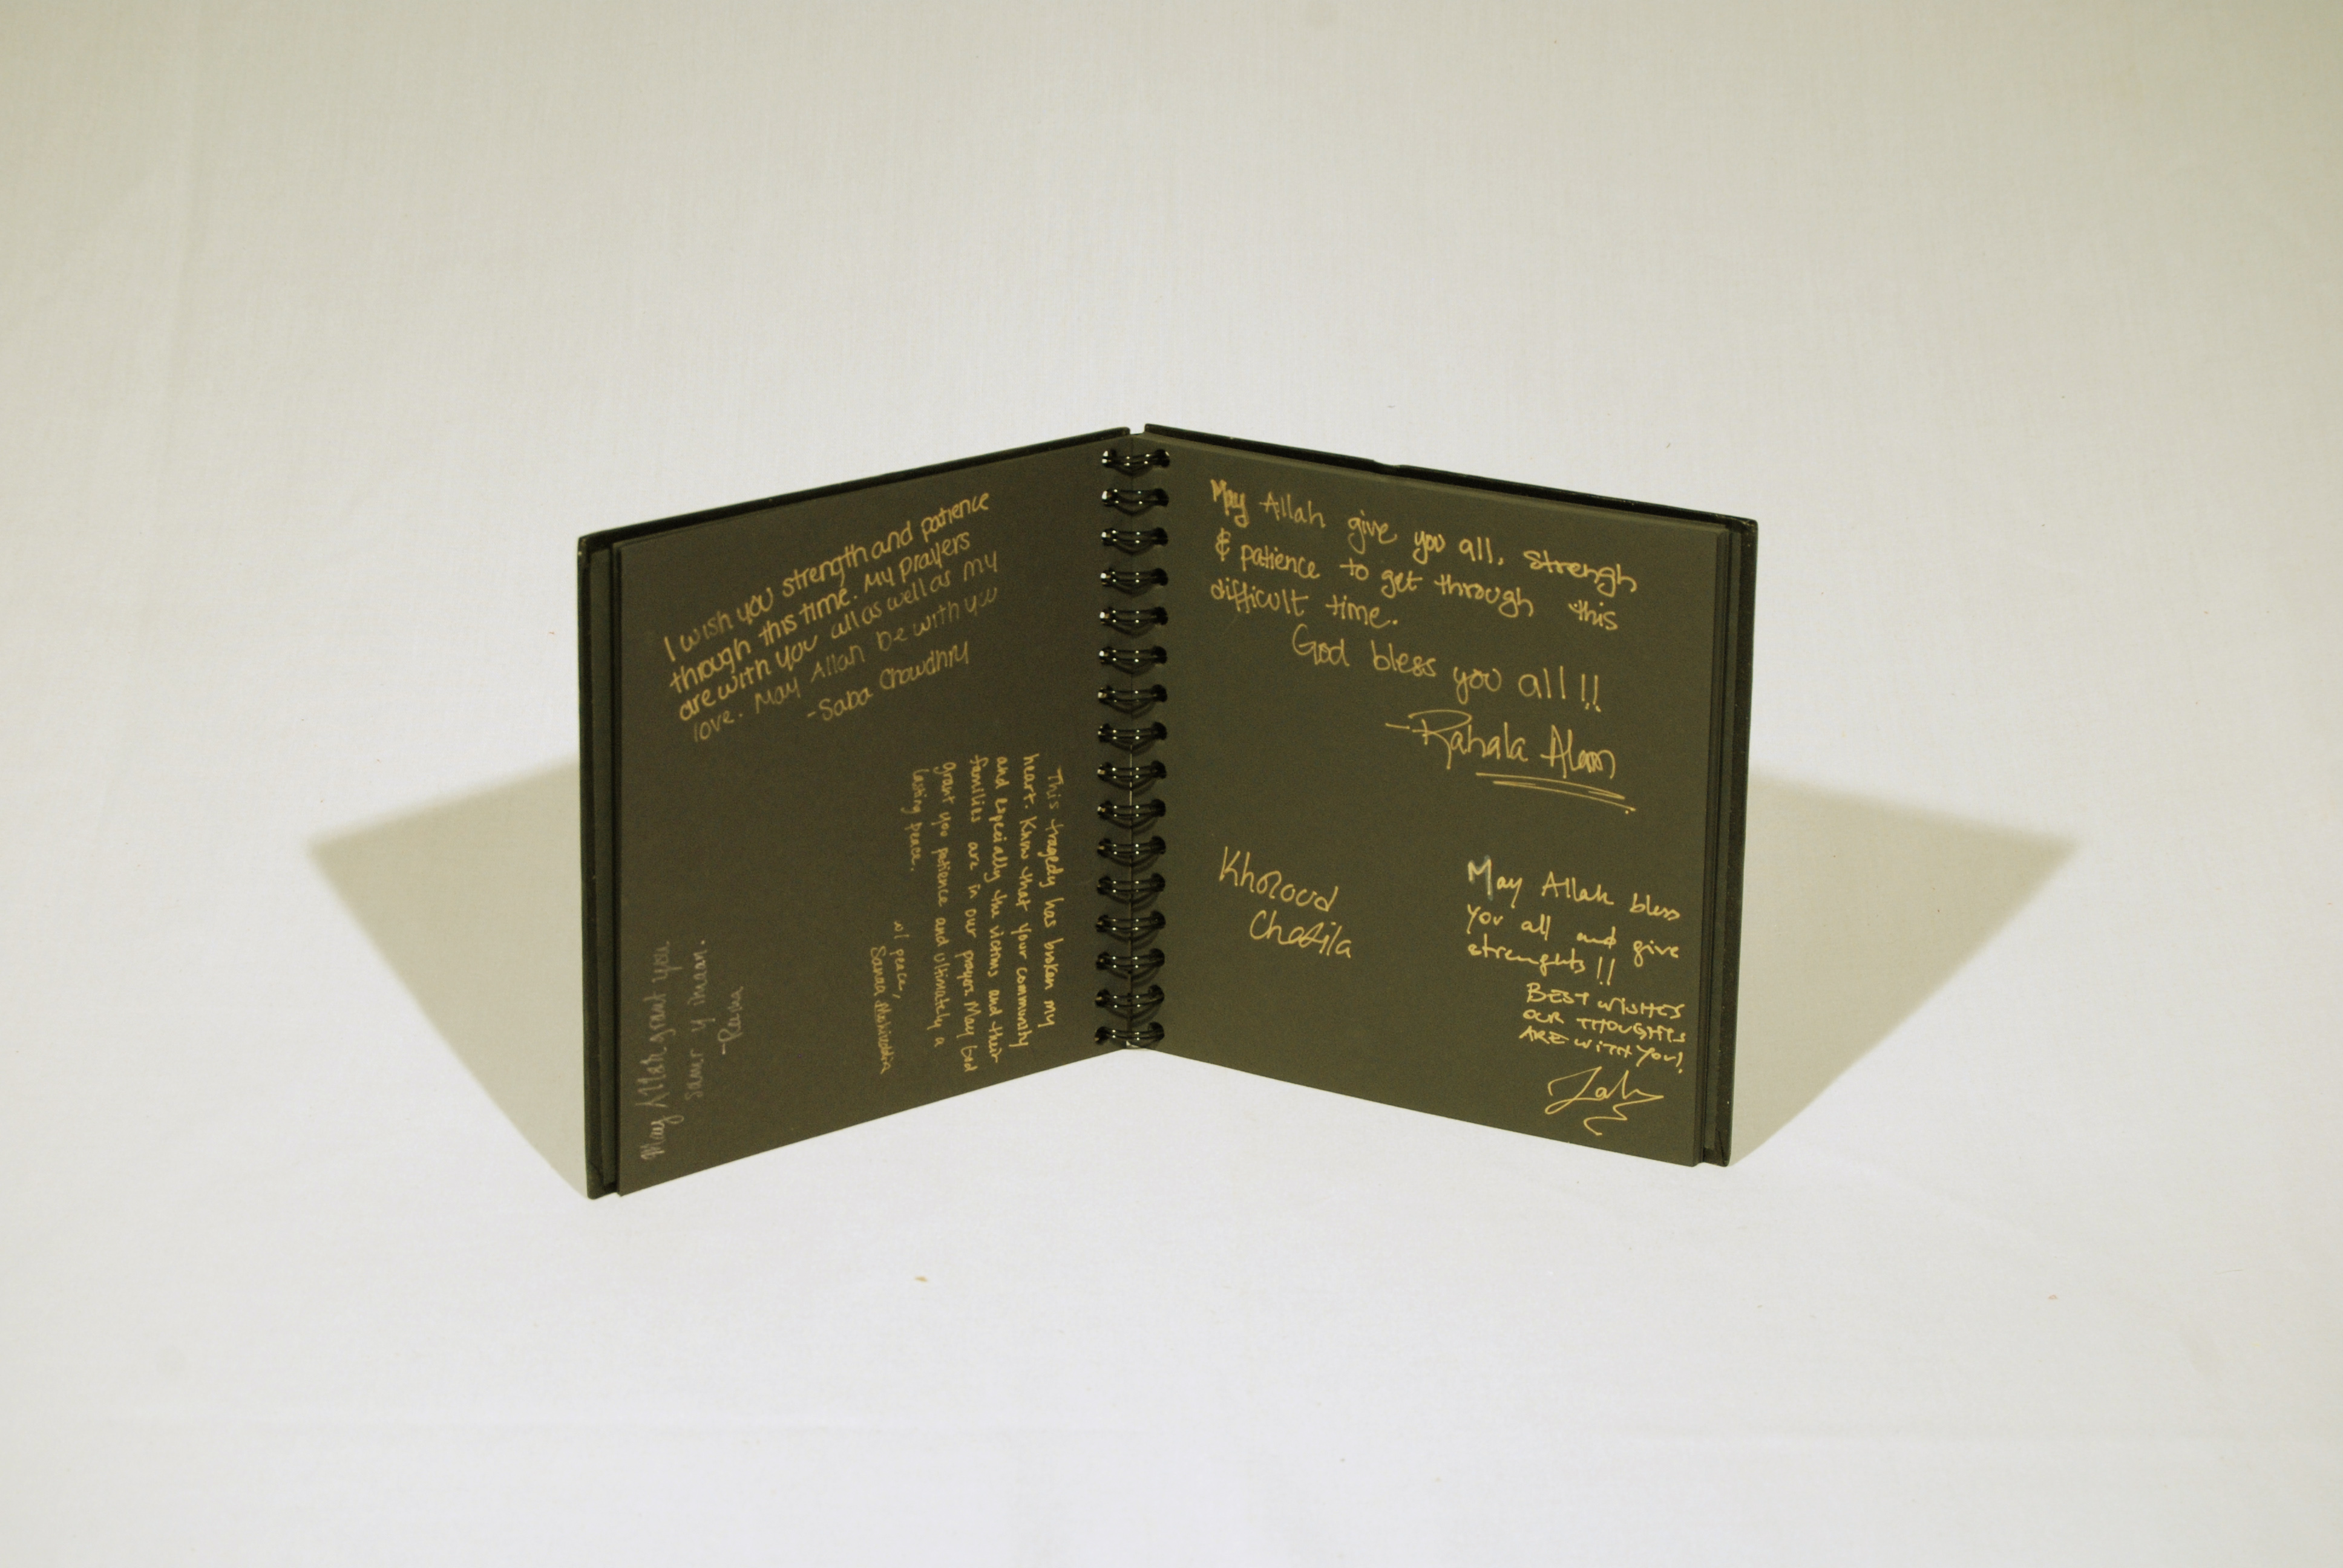 I wish you strength and patience
through this time. My prayers
are with you all as well as my
love. May Allah be with you
-Saba Chowdhry
This tragedy has broken my
heart. Know that your community
and especially the victims and their
families are in our prayers. May God
grant you patience and ultimately a
lasting peace.
w/ peace,
Sanaa
May Allah grant you
sabr & imaan.
-Rasha
May Allah give you all, strengh
& patience to get through this
difficult time.
God bless you all!!
-Rahala Alam
Kholoud
Chatila
May Allah bless
you all and give
strenghts!!
BEST WISHES
OUR THOUGHTS
ARE WITH YOU!